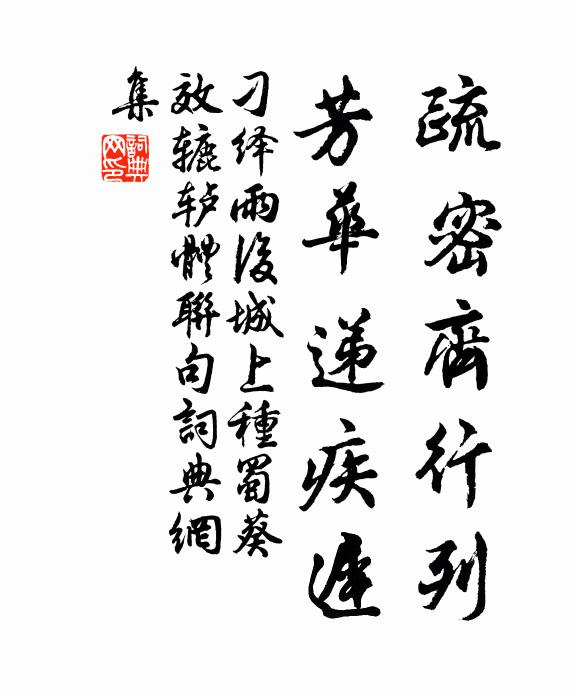 疏密齊行列
芳華遞疾遲
刁绎雨後城上種蜀葵
效辘轳體聯句詞典網
集
詞典网印